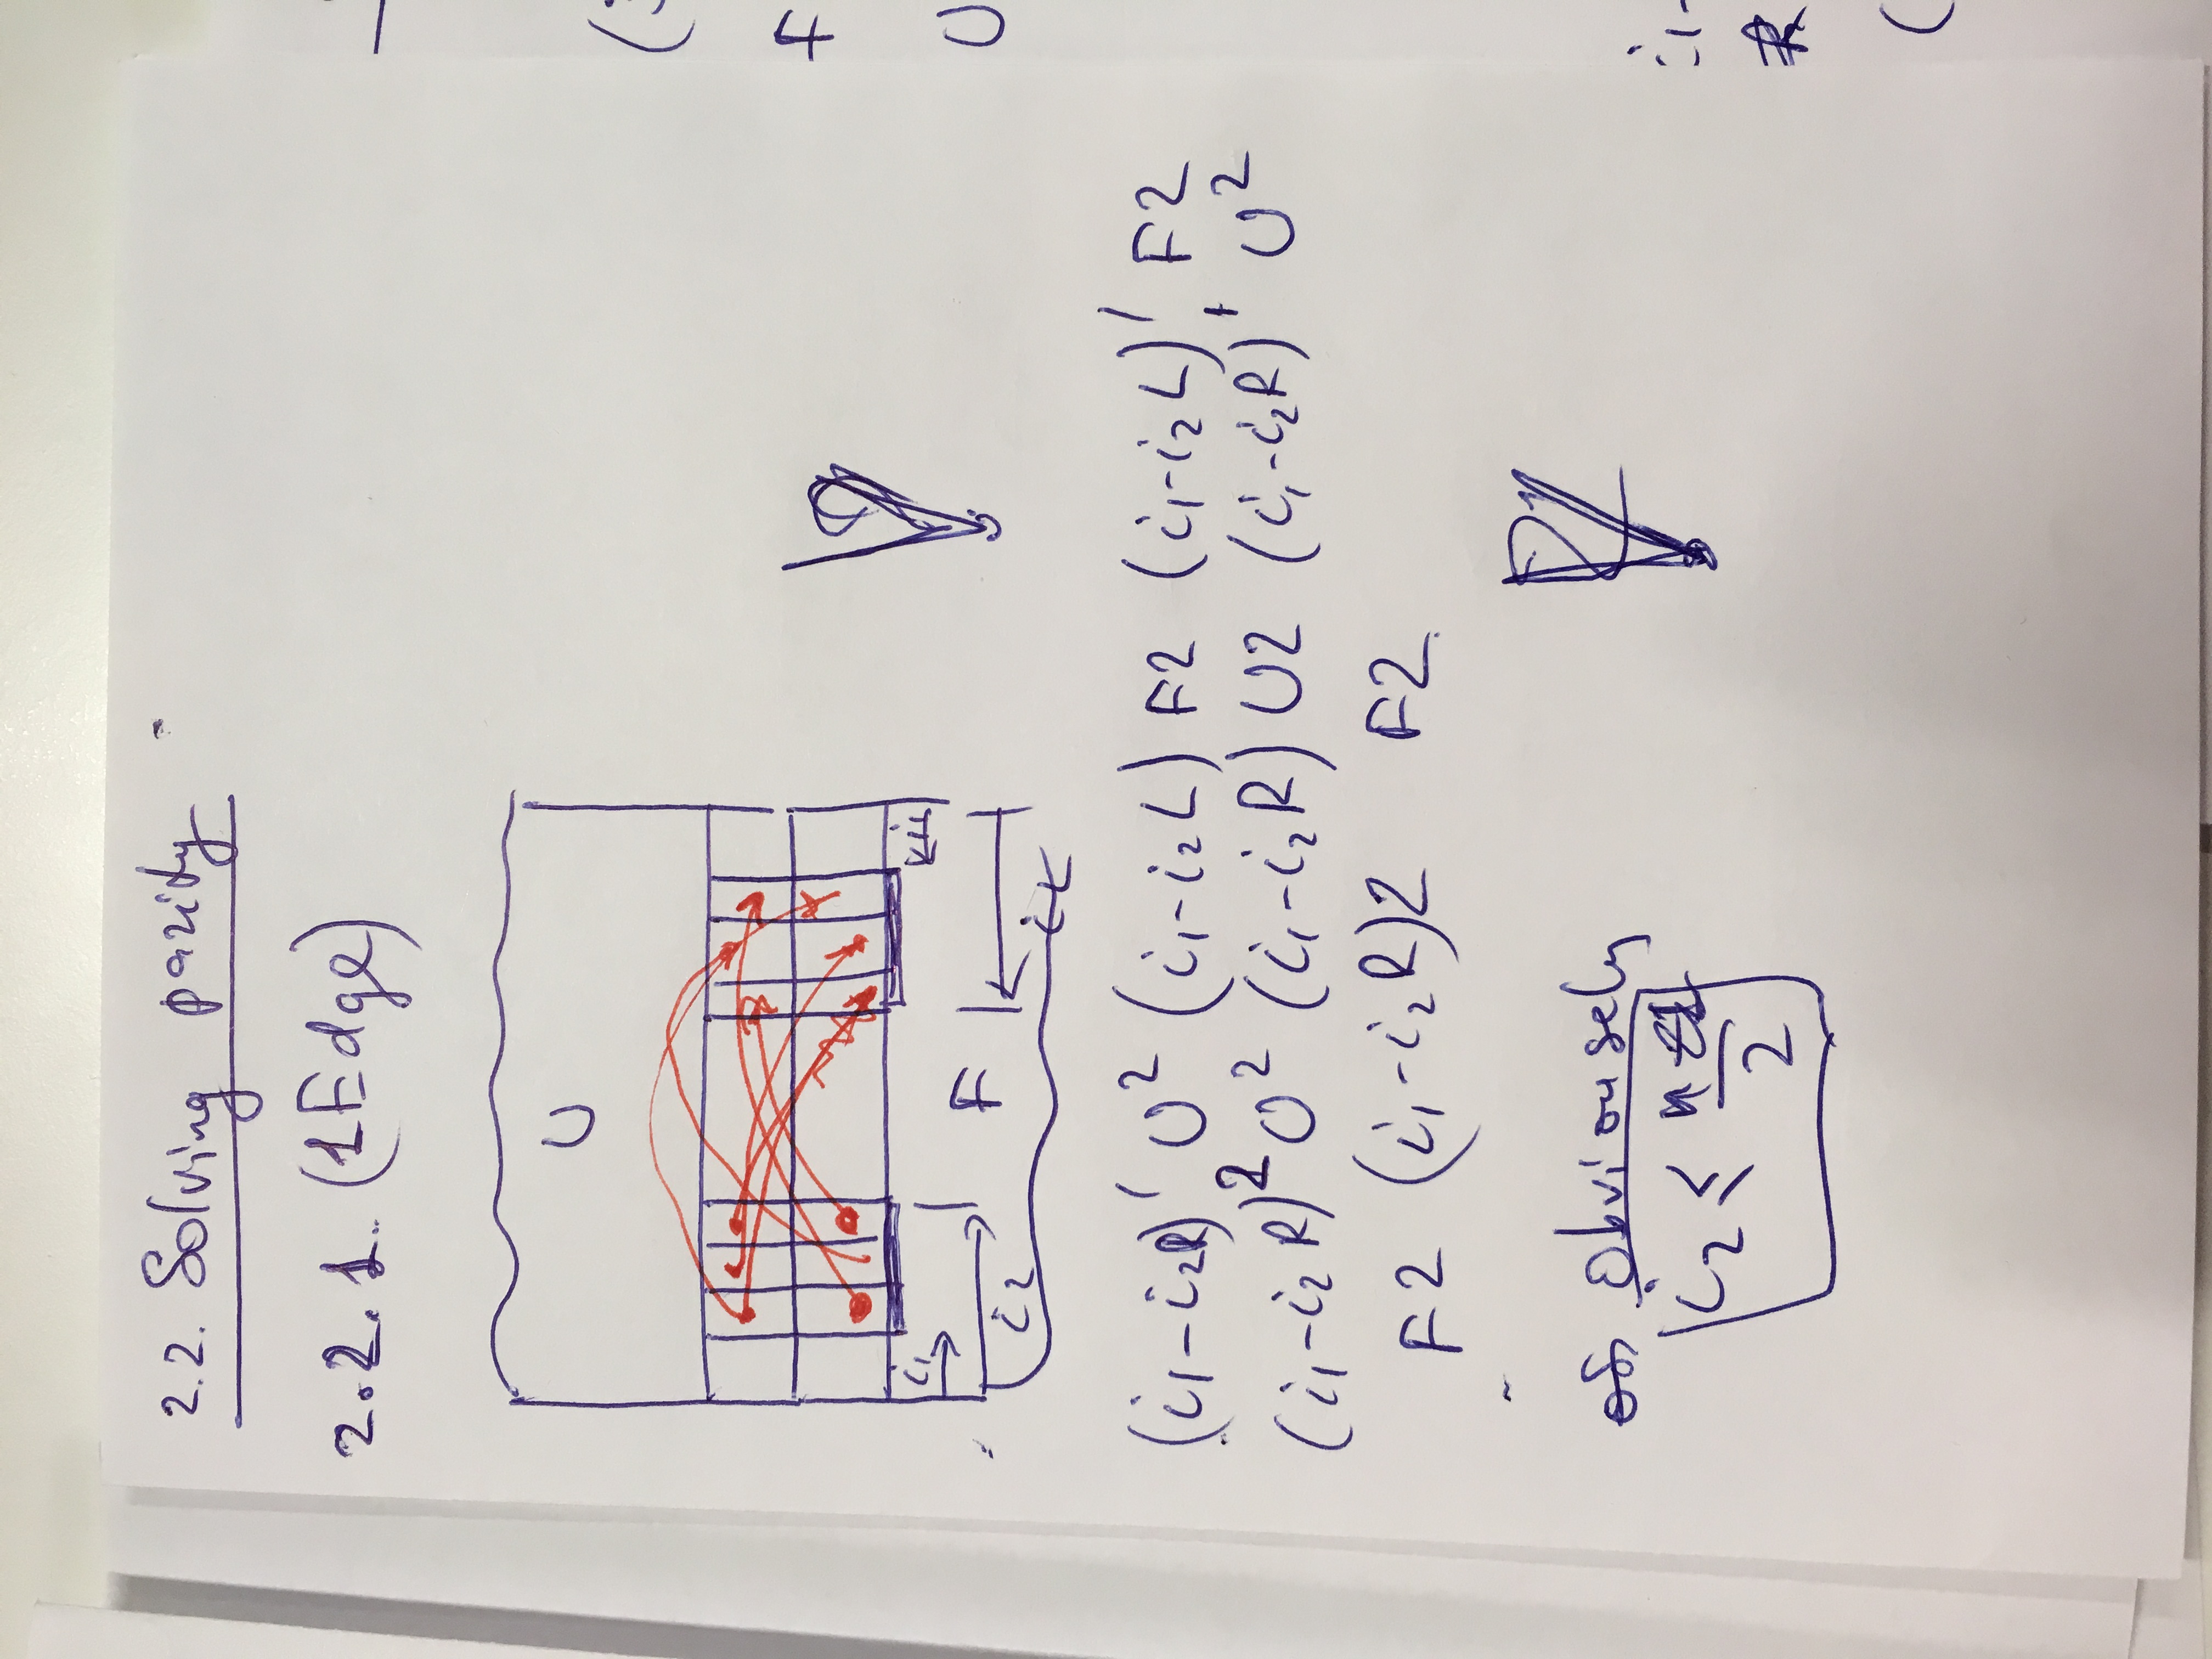 2.2. Solving parity
2.2.1. (1Edge)
U
i1
i1
F
i2
i2
(i1-i2R)' U² (i1-i2L) F2 (i1-i2L)' F2
(i1-i2R)² U² (i1-i2R) U2 (i1-i2R)' U²
F2 (i1-i2R)2 F2
Obviousely
i2 ≤
2
(
F
U
i1-
(